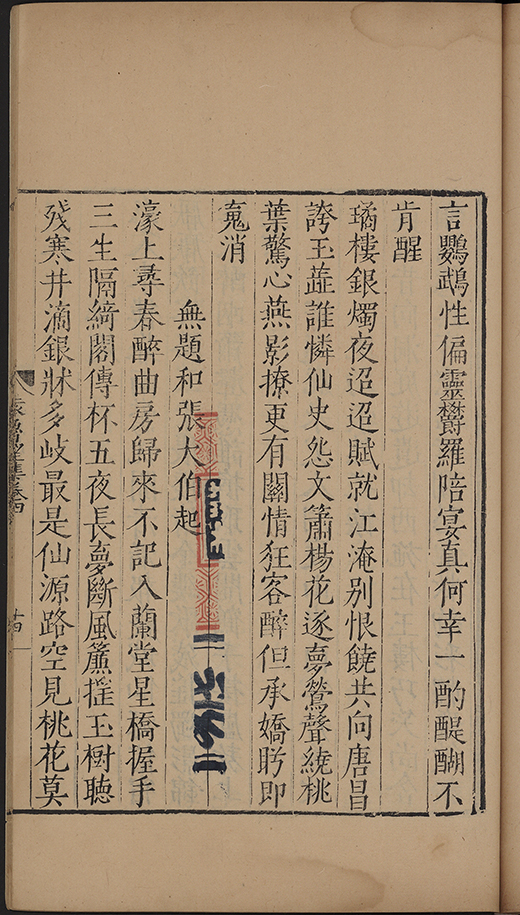 言鸚鵡性偏靈欝羅陪宴真何幸一酌醍醐不
肯醒
璚樓銀燭夜迢迢賦就江淹别恨饒共向唐昌
誇玉蘂誰憐仙史怨文簫楊花逐夢鶯聲繞桃
葉驚心燕影撩更有關情狂客醉但承嬌盻即
䰟消
無題和張大伯起
濠上尋春醉曲房歸來不記入蘭堂星橋握手
三生隔綺閣傳杯五夜長夢斷風簾摇玉樹聽
殘寒井滴銀牀多岐最是仙源路空見桃花莫